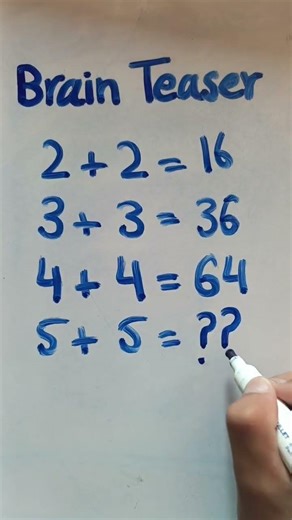 Brain Teaser
2 + 2 = 16
3 + 3 = 36
4 + 4 = 64
5 + 5 = ??